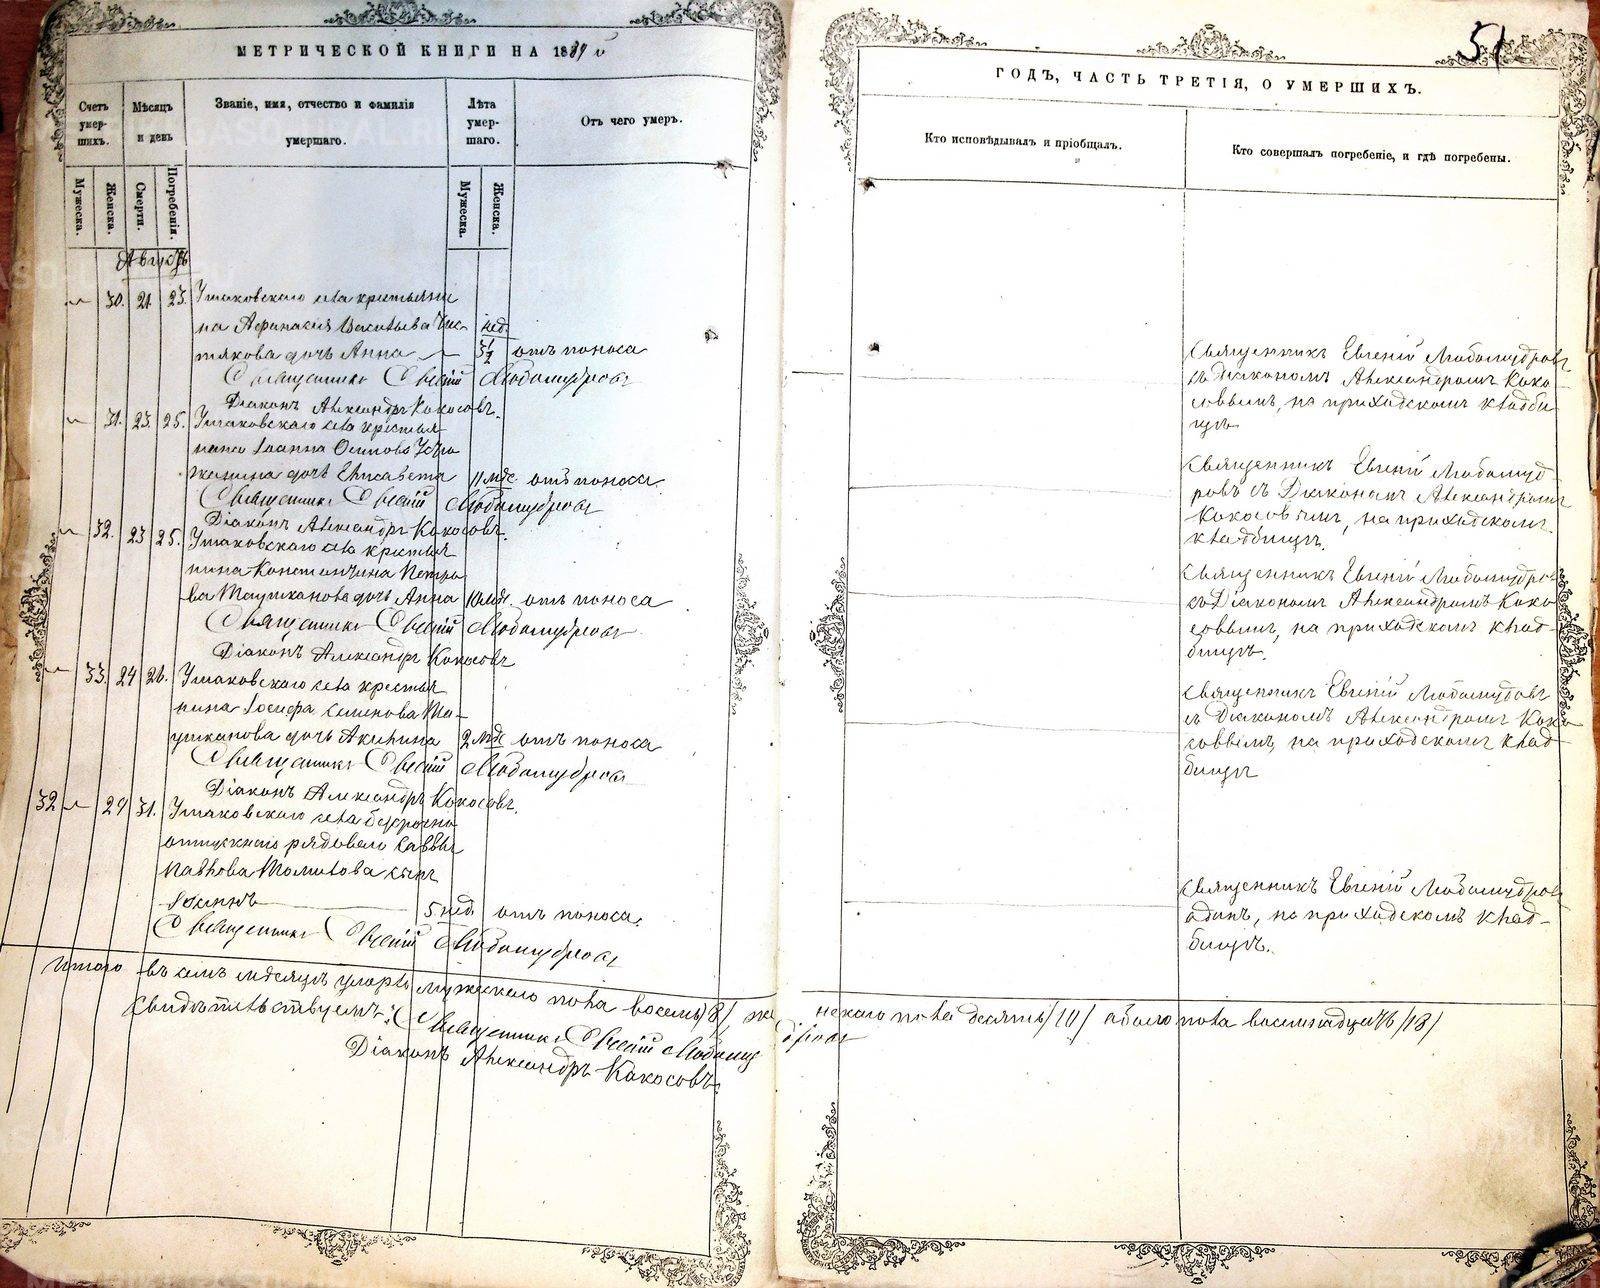 МЕТРИЧЕСКОЙ КНИГИ НА 1889 й
Счетъ умер-шихъ.
Мѣсяцъ и день
Званіе, имя, отчество и фамилія умершаго.
Лѣта умер-шаго.
Отъ чего умеръ.
Мужеска.
Женска.
Смерти.
Погребенія.
Мужеска.
Женска.
Августъ
30. 21. 23. Ушаковскаго села крестьяни
на Афанасія Васильева Чис- нед.
тякова дочь Анна 3½ отъ поноса
Священникъ Евгеній Любомудровъ
Діаконъ Александръ Кокосовъ.
31. 23. 25. Ушаковскаго села крестья
нина Іоанна Осипова
дочь Елисавета 11 мѣс. отъ поноса.
Священникъ Евгеній Любомудровъ
Діаконъ Александръ Кокосовъ.
32. 23 25. Ушаковскаго села крестья
нина Константина Петро
ва дочь Анна 10 мѣс. отъ поноса
Священникъ Евгеній Любомудровъ
Діаконъ Александръ Кокосовъ
33. 24 26. Ушаковскаго села крестья
нина Іосифа Семенова
дочь Акилина 2 мѣс отъ поноса
Священникъ Евгеній Любомудровъ
Діаконъ Александръ Кокосовъ.
32 29 31. Ушаковскаго села безсрочно
отпускнаго рядоваго Саввы
Павлова сынъ
Іоаннъ 5 нед. отъ поноса.
Священникъ Евгеній Любомудровъ
Итого въ семъ мѣсяцѣ умерло мужескаго пола восемь /8/, же
Свидѣтельствуемъ: Священникъ Евгеній Любому
Діаконъ Александръ Кокосовъ.
51
ГОДЪ, ЧАСТЬ ТРЕТІЯ, О УМЕРШИХЪ.
Кто исповѣдывалъ и пріобщалъ.
Кто совершалъ погребеніе, и гдѣ погребены.
Священникъ Евгеній Любомудровъ
съ Діакономъ Александромъ Коко
совымъ, на приходскомъ кладби
щѣ
Священникъ Евгеній Любомуд-
ровъ съ Діакономъ Александромъ
Кокосовымъ, на приходскомъ
кладбищѣ.
Священникъ Евгеній Любомудро
съ Діакономъ Александромъ Коко
совымъ, на приходскомъ клад-
бищѣ.
Священникъ Евгеній Любомудровъ
съ Діакономъ Александромъ Коко
совымъ, на приходскомъ клад-
бищѣ
Священникъ Евгеній Любомудровъ
одинъ, на приходскомъ клад-
бищѣ.
нскаго пола десять /10/ обоего пола восемнадцать /18/
дровъ